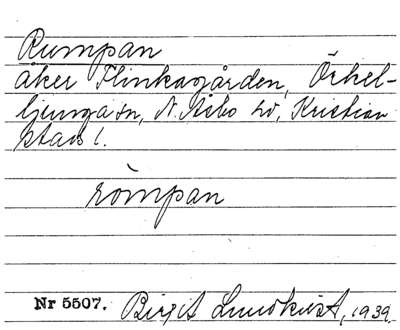 Rumpan
åker Flinkagården, Örkel-
ljunga sn, N. Åsbo hd, Kristian
stads l.
ròmpan
Nr 5507. Birgit Lundkvist, 1939.